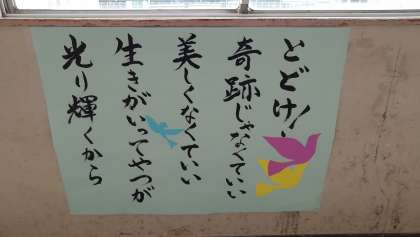 とどけ!
奇跡じゃなくていい
美しくなくていい
生きがいってやつが
光り輝くから